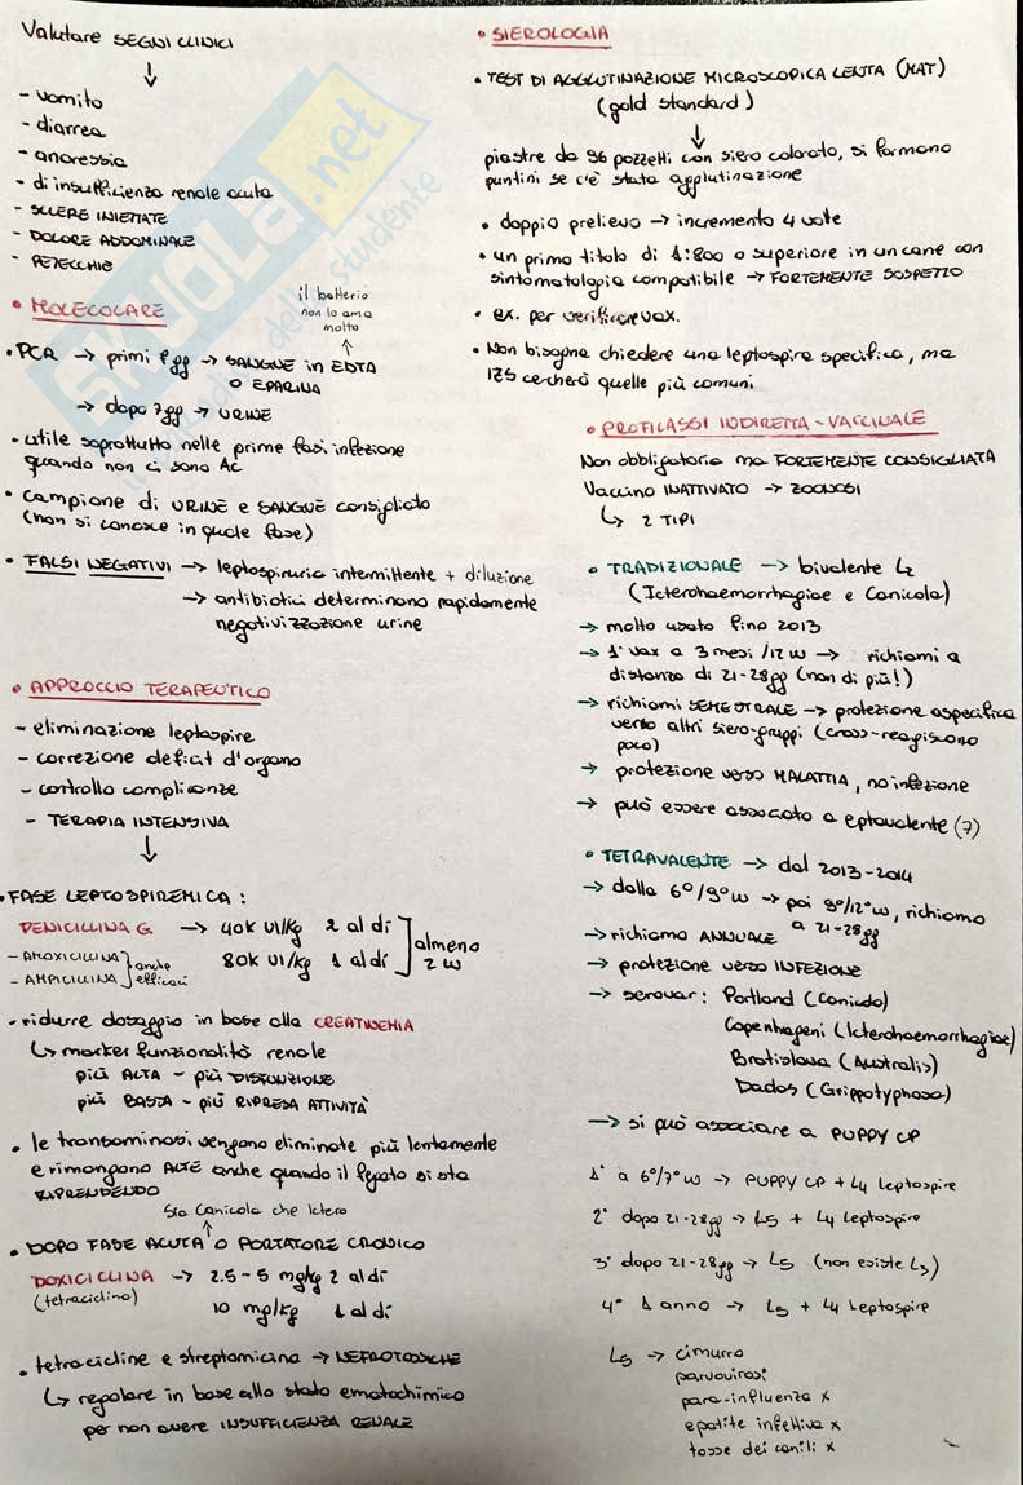 Valutare SEGNI CLINICI
↓
- vomito
- diarrea
- anoressia
- di insufficienza renale acuta
- SCLERE INIETTATE
- DOLORE ADDOMINALE
- PETECCHIE
• MOLECOLARE
il batterio
non lo ama
molto
↑
• PCR → primi 7 gg → SANGUE in EDTA
O EPARINA
→ dopo 7gg → URINE
• utile soprattutto nelle prime fasi infezione
quando non ci sono Ac
• Campione di URINE e SANGUE consigliato
(non si conosce in quale fase)
• FALSI NEGATIVI → leptospiruria intermittente + diluzione
→ antibiotici determinano rapidamente
negativizzazione urine
• APPROCCIO TERAPEUTICO
- eliminazione leptospire
- correzione deficit d'organo
- controllo complicanze
- TERAPIA INTENSIVA
↓
• FASE LEPTOSPIREMICA:
PENICILLINA G → 40K UI/Kg 2 al dì
80K UI/Kg 1 al dì
almeno
2 w
- AMOXICILLINA
- AMPICILLINA
anche
efficaci
• ridurre dosaggio in base alla CREATINEMIA
↳ marker funzionalità renale
più ALTA - più DISFUNZIONE
più BASSA - più RIPRESA ATTIVITÀ
• le transaminasi vengono eliminate più lentamente
e rimangono ALTE anche quando il fegato si sta
RIPRENDENDO
Sia Canicola che Ictero
↑
• DOPO FASE ACUTA O PORTATORE CRONICO
DOXICICLINA → 2.5-5 mg/kg 2 al dì
(tetraciclina)
10 mg/kg 1 al dì
• tetracicline e streptomicina → NEFROTOSSICHE
↳ regolare in base allo stato ematochimico
per non avere INSUFFICIENZA RENALE
• SIEROLOGIA
• TEST DI AGGLUTINAZIONE MICROSCOPICA LENTA (MAT)
(gold standard)
↓
piastre da 96 pozzetti con siero colorato, si formano
puntini se c'è stata agglutinazione
• doppio prelievo → incremento 4 volte
• un primo titolo di 1:800 o superiore in un cane con
sintomatologia compatibile → FORTEMENTE SOSPETTO
• ex. per verificare vax.
• Non bisogna chiedere una leptospira specifica, ma
IZS cercherà quelle più comuni
• PROFILASSI INDIRETTA - VACCINALE
Non obbligatoria ma FORTEMENTE CONSIGLIATA
Vaccino INATTIVATO → ZOONOSI
↳ 2 TIPI
• TRADIZIONALE → bivalente L2
(Icterohaemorrhagiae e Canicola)
→ molto usato fino 2013
→ 1° vax a 3 mesi /12 w → richiami a
distanza di 21-28gg (non di più!)
→ richiami SEMESTRALE → protezione aspecifica
verso altri siero-gruppi (cross-reagiscono
poco)
→ protezione verso MALATTIA, no infezione
→ può essere associato a eptavalente (7)
• TETRAVALENTE → dal 2013-2014
→ dalla 6°/9° w → poi 9°/12° w, richiamo
a 21-28gg
→ richiamo ANNUALE
→ protezione verso INFEZIONE
→ serovar: Portland (Canicola)
Copenhageni (Icterohaemorrhagiae)
Bratislava (Australis)
Dadas (Grippotyphosa)
→ si può associare a PUPPY CP
1° a 6°/7° w → PUPPY CP + L4 leptospire
2° dopo 21-28gg → L5 + L4 leptospire
3° dopo 21-28gg → L5 (non esiste L3)
4° 1 anno → L5 + L4 leptospire
L5 → cimurro
parvovirosi
para-influenza x
epatite infettiva x
tosse dei canili x
SKUOLA.net